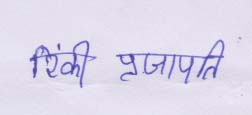 रिंकी प्रजापति